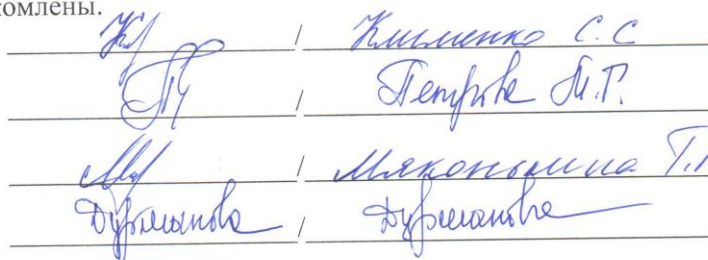 комлены.
/ Клименко С. С
/ Петрова М.Г.
/ Мяконькина Т.
Дурманова / Дурманова